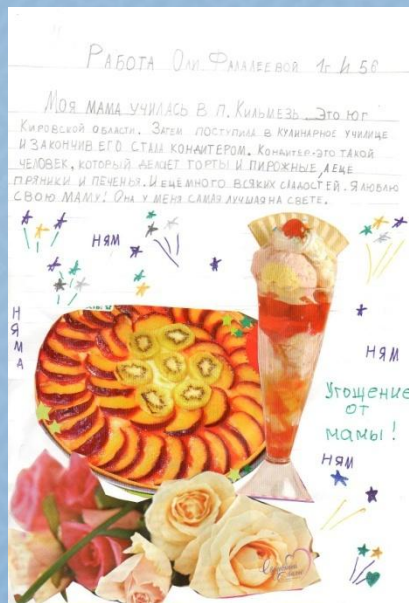 Работа Оли Фалалеевой 1г И 5б
Моя мама училась в п. Кильмезь. Это юг
Кировской области. Затем поступила в кулинарное училище
и закончив его стала кондитером. Кондитер-это такой
человек, который делает торты и пирожные, еще
пряники и печенья. И еще много всяких сладостей. Я люблю
свою маму! Она у меня самая лучшая на свете.
ням
няма
ням
Угощение
от
мамы!
ням